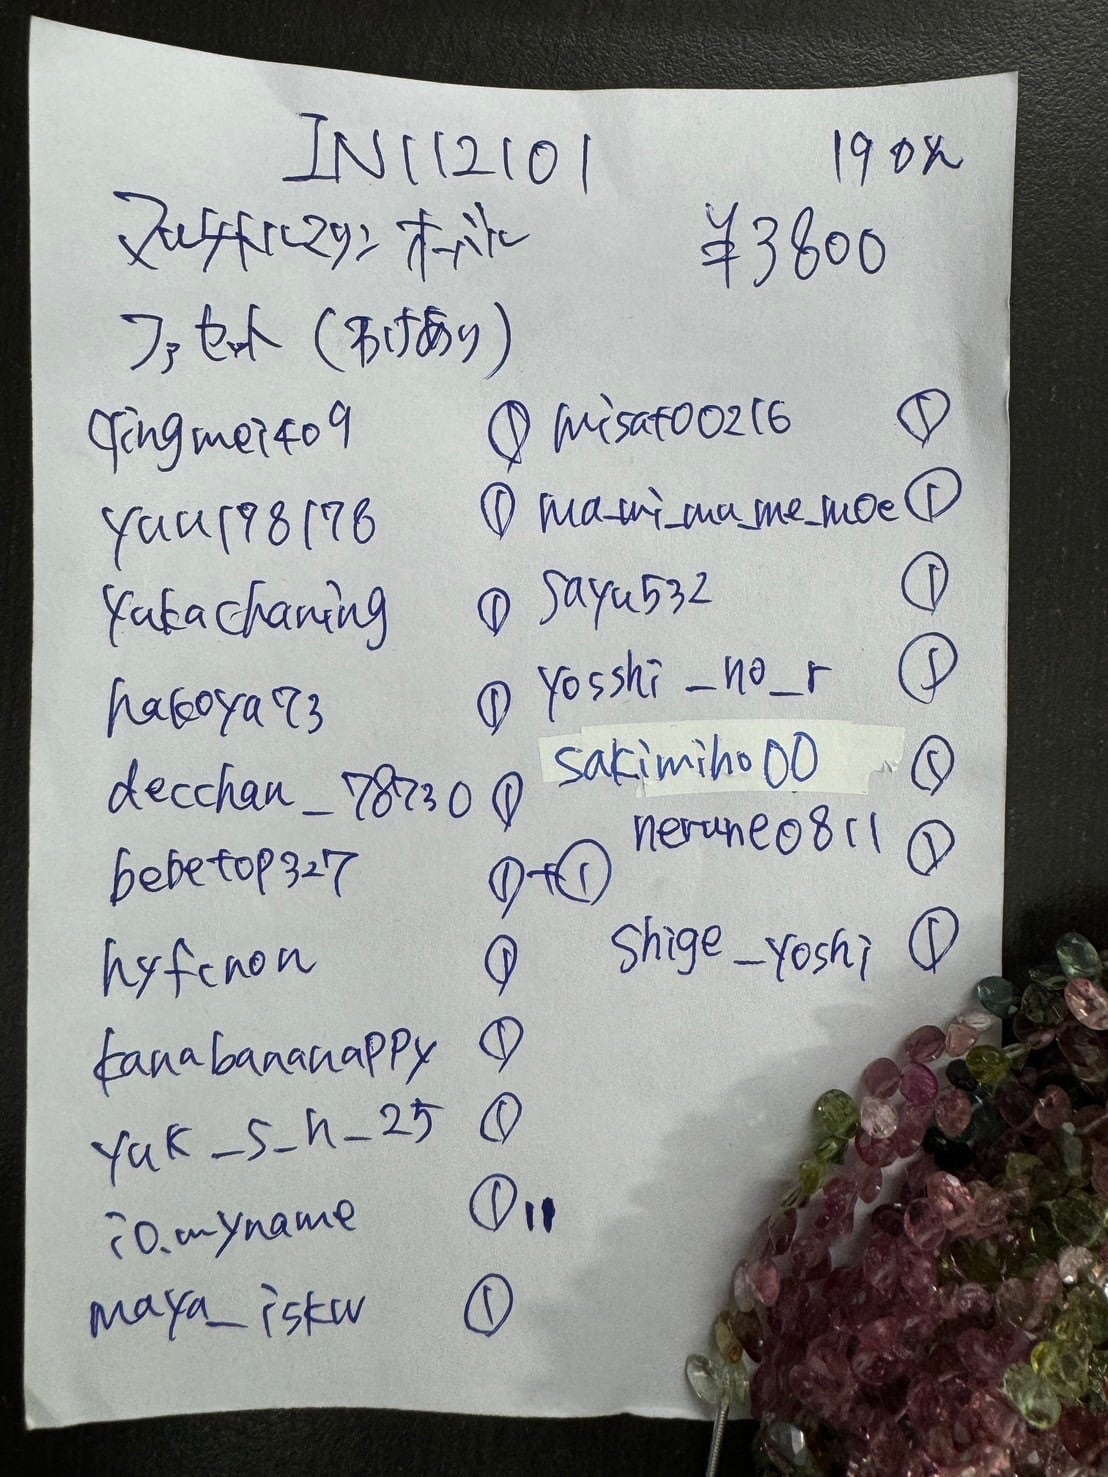 IN112101 190g
マルチトルマリン オーバル ¥3800
ファセット (わけあり)
qingmei409 ①
yuu198178 ①
yukachaning ①
hakoya73 ①
decchan_78730 ①
bebetop327 ①+①
hyfcnon ①
kanabananappy ①
yuk_s_h_25 ①
io.myname ①
maya_iskw ①
misato0216 ①
ma_mi_mu_me_moe ①
sayu532 ①
yosshi_no_r ①
sakimiho00 ①
nerune0811 ①
shige_yoshi ①